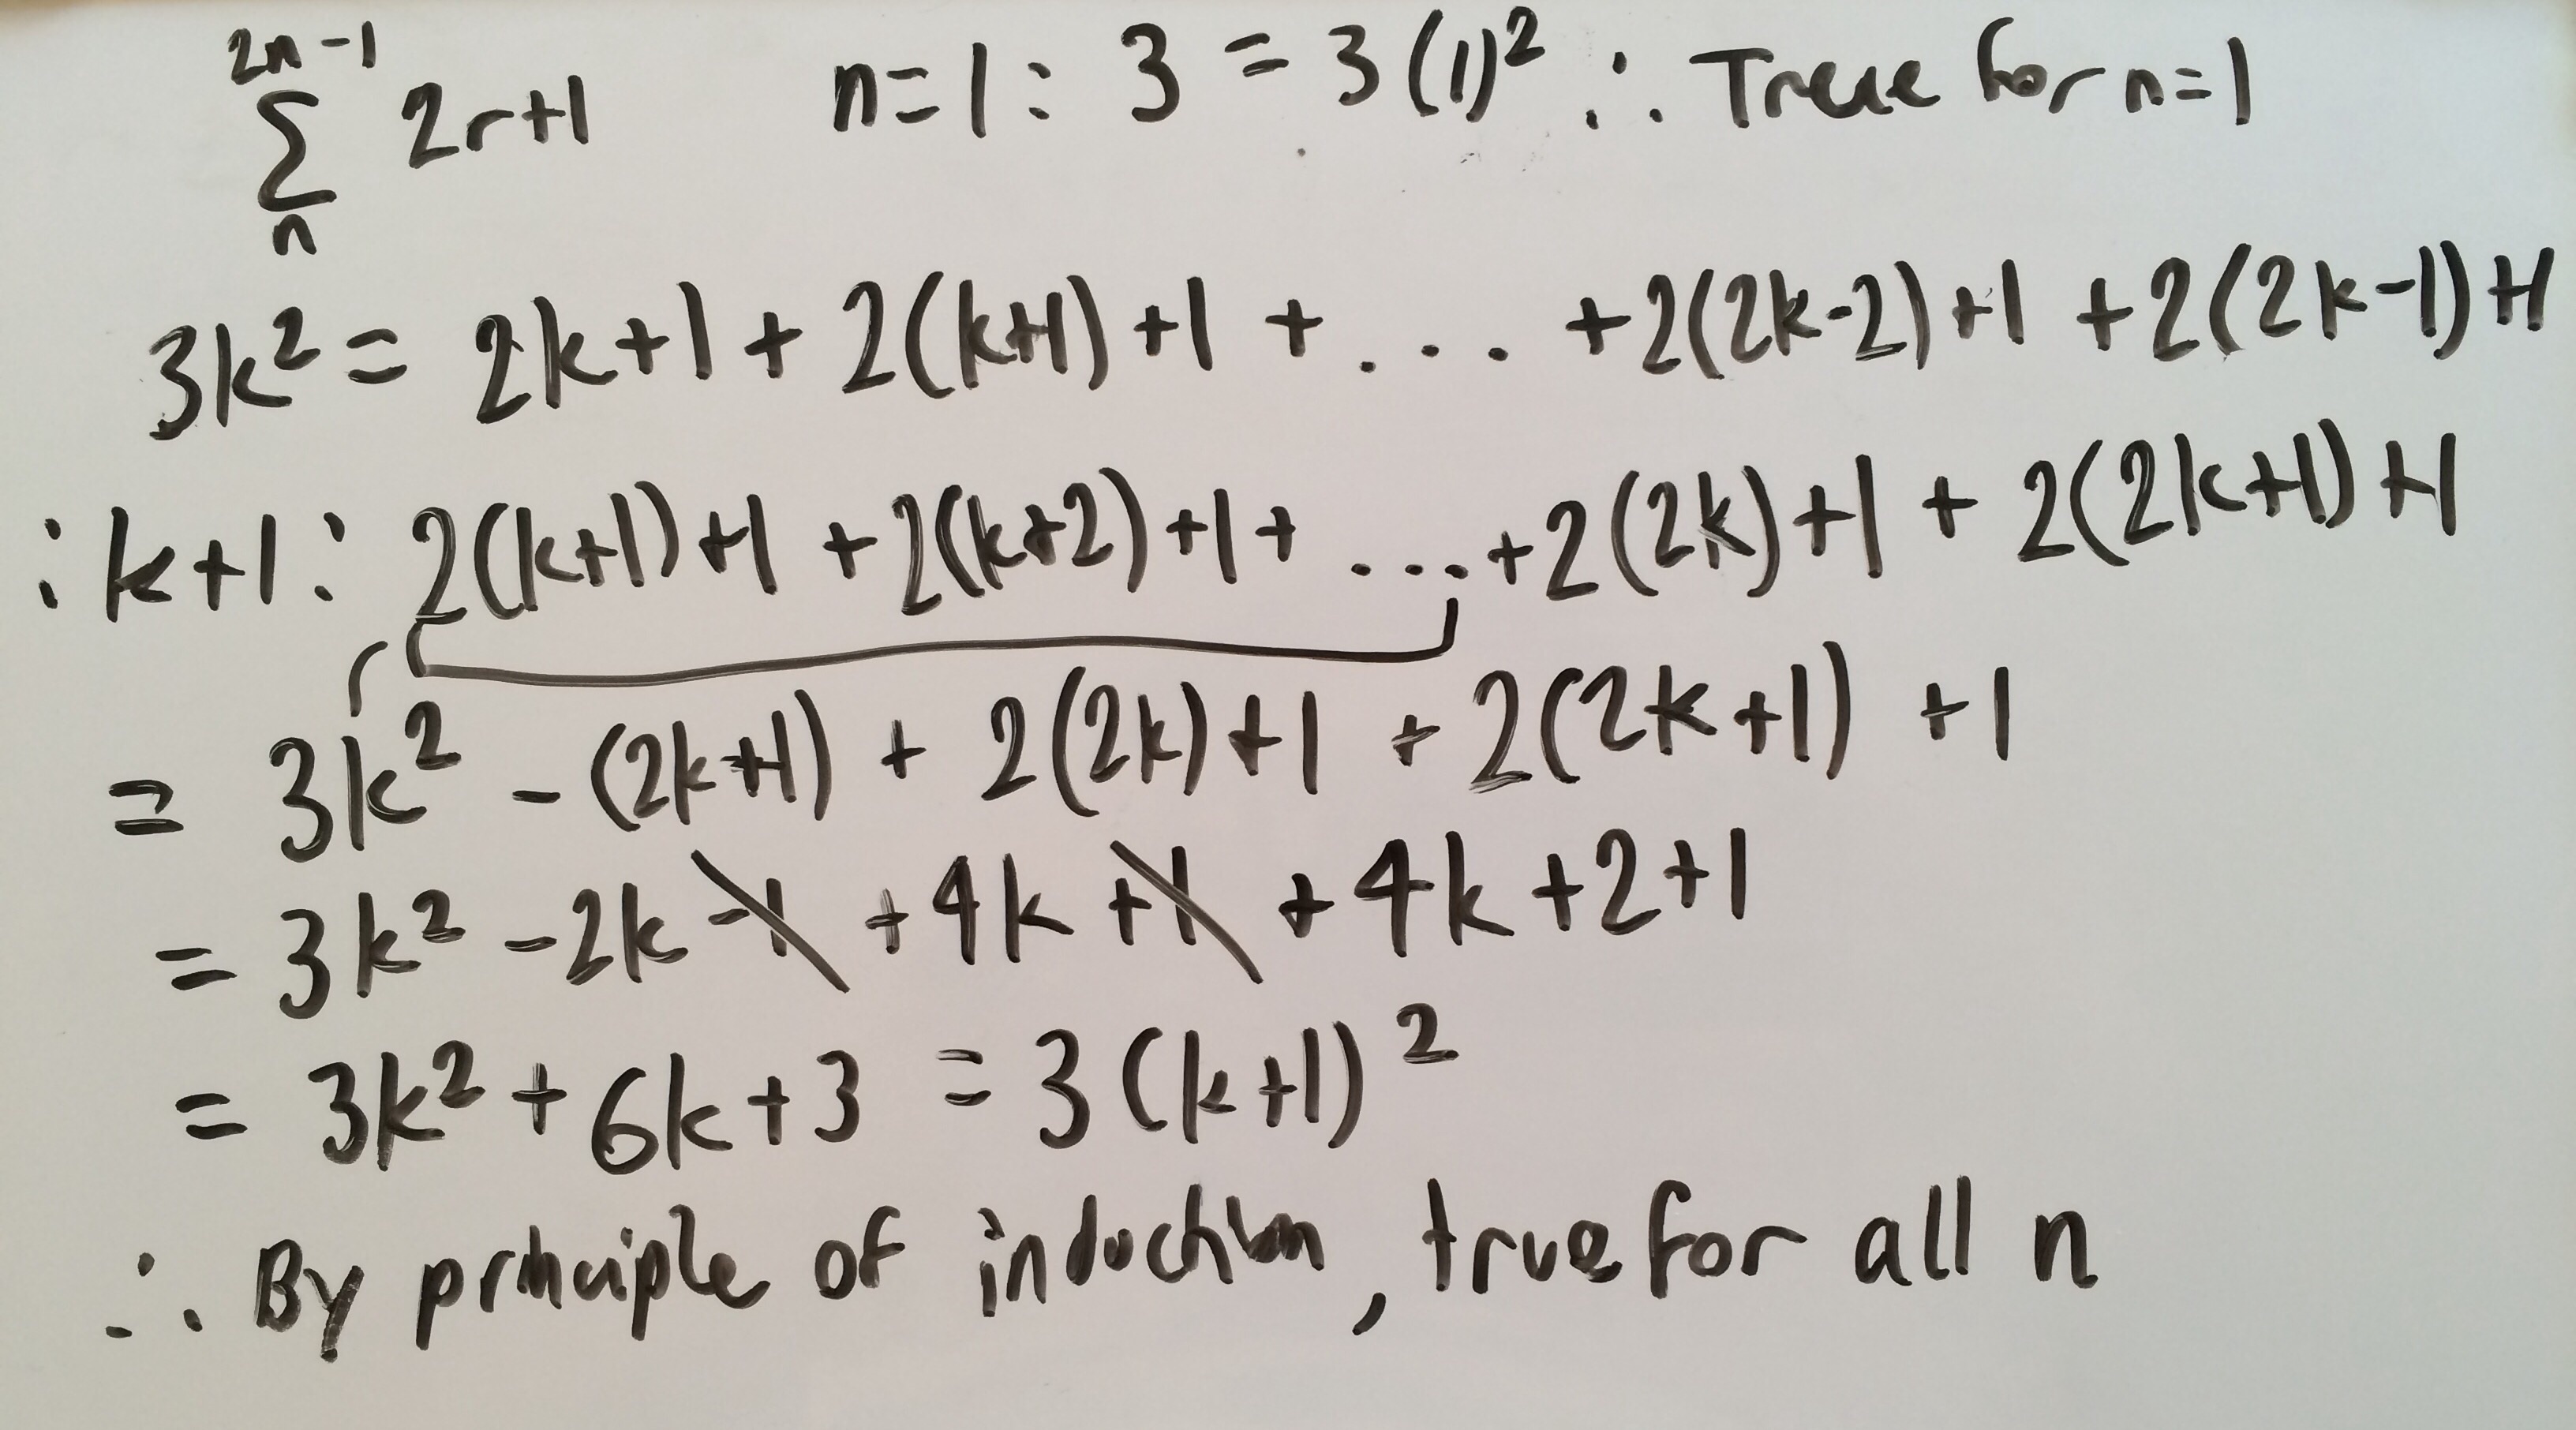 2n-1
∑ 2r+1 n=1: 3 = 3(1)² ∴ True for n=1
n
3k² = 2k+1 + 2(k+1)+1 + ... +2(2k-2)+1 +2(2k-1)+1
: k+1: 2(k+1)+1 +2(k+2)+1+ .... +2(2k)+1 + 2(2k+1)+1
= 3k² - (2k+1) + 2(2k)+1 + 2(2k+1) +1
= 3k² -2k -1 +4k +1 +4k +2+1
= 3k² + 6k+3 = 3(k+1)²
∴ By principle of induction, true for all n